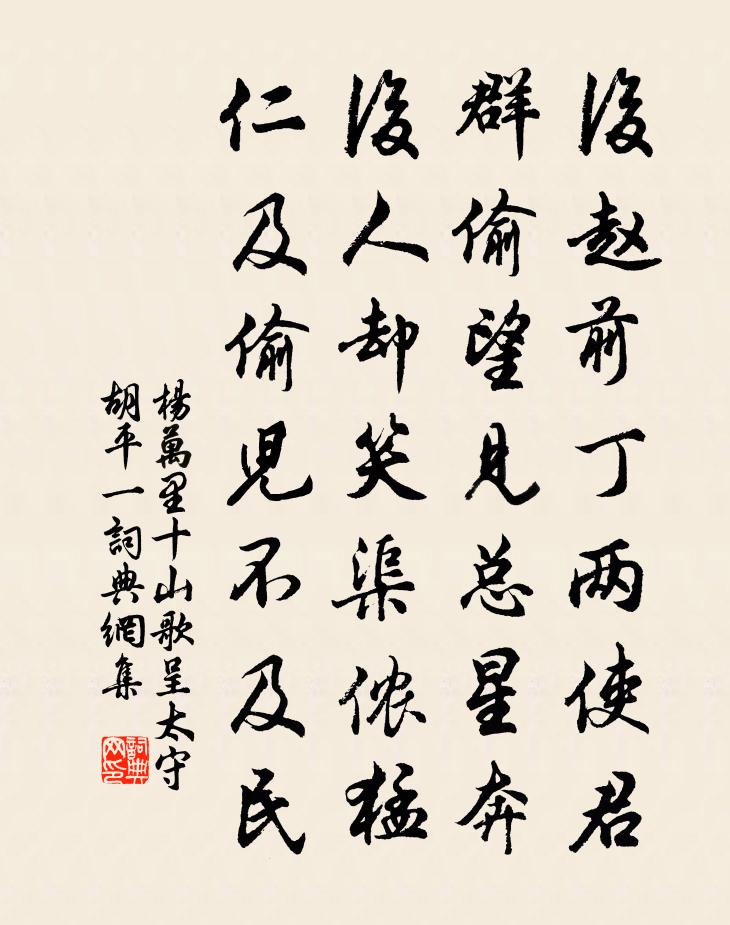 後赵前丁两使君
群偷望見总星奔
後人却笑渠侬猛
仁及偷兒不及民
楊萬里十山歌呈太守
胡平一詞典網集
詞典网印